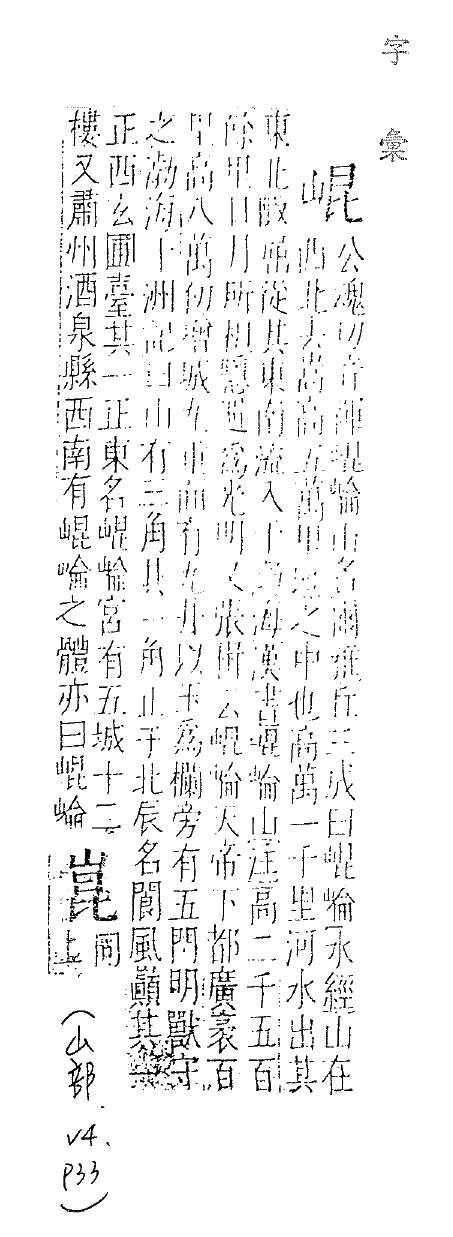 字彙
崐 公魂切音 崐崘山名爾 丘三成曰崐崘水經山在
西北去 高五萬里地之中也高萬一千里河水出其
東北陬 從其東南流入于 海漢書崐崘山注高二千五百
餘里日月所相隱避爲光明又張 云崐崘天帝下都廣袤百
里高八萬仞增城九重面有九井以玉爲欄旁有五門明獸守
之渤海十洲記曰山有三角其一角正于北辰名閬風巔其一
正西玄圃臺其一正東名崐崘宮有五城十二
樓又肅州酒泉縣西南有崐崘之體亦曰崐崘 崑 同上
(山部 v4. p33)